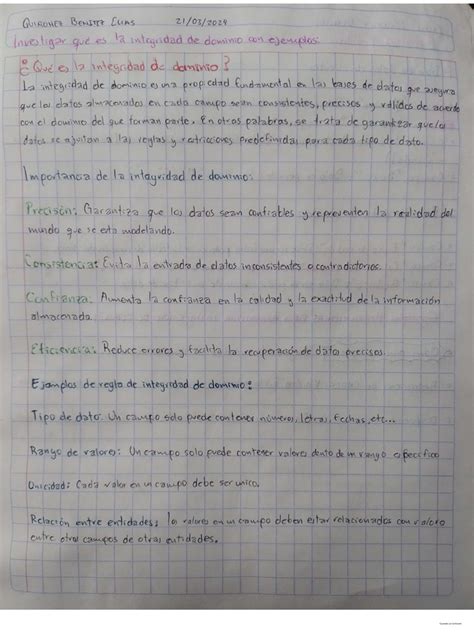 QUIRONEZ BENITEZ ELIAS 21/03/2024
Investigar qué es la integridad de dominio con ejemplos.
¿Qué es la integridad de dominio?
La integridad de dominio es una propiedad fundamental en las bases de datos que asegura
que los datos almacenados en cada campo sean consistentes, precisos y válidos de acuerdo
con el dominio del que forman parte. En otras palabras, se trata de garantizar que los
datos se ajustan a las reglas y restricciones predefinidas para cada tipo de dato.
Importancia de la integridad de dominio:
Precisión: Garantiza que los datos sean confiables y representen la realidad del
mundo que se esta modelando.
Consistencia: Evita la entrada de datos inconsistentes o contradictorios.
Confianza: Aumenta la confianza en la calidad y la exactitud de la información
almacenada.
Eficiencia: Reduce errores y facilita la recuperación de datos precisos.
Ejemplos de regla de integridad de dominio:
Tipo de dato: Un campo solo puede contener números, letras, fechas, etc...
Rango de valores: Un campo solo puede contener valores dento de un rango especifico
Unicidad: Cada valor en un campo debe ser unico.
Relación entre entidades: los valores en un campo deben estar relacionados con valores
entre otros campos de otras entidades.